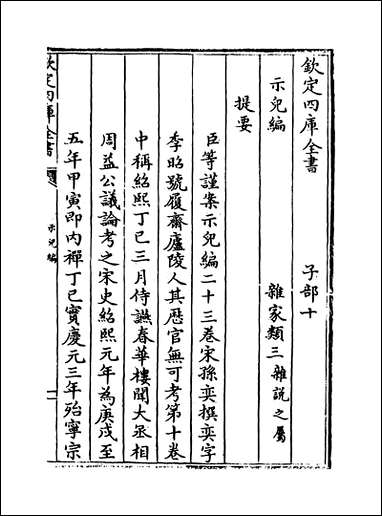 欽定四庫全書　　　子部十
示兒編　　　　　　雜家類三雜說之屬
提要
臣等謹案示兒編二十三卷宋孫奕撰奕字
季昭號履齋廬陵人其歷官無可考第十卷
中稱紹熙丁巳三月侍讌春華樓聞大丞相
周益公議論考之宋史紹熙元年為庚戌至
五年甲寅即內禪丁巳實慶元三年殆寧宗
欽定四庫全書
示兒編